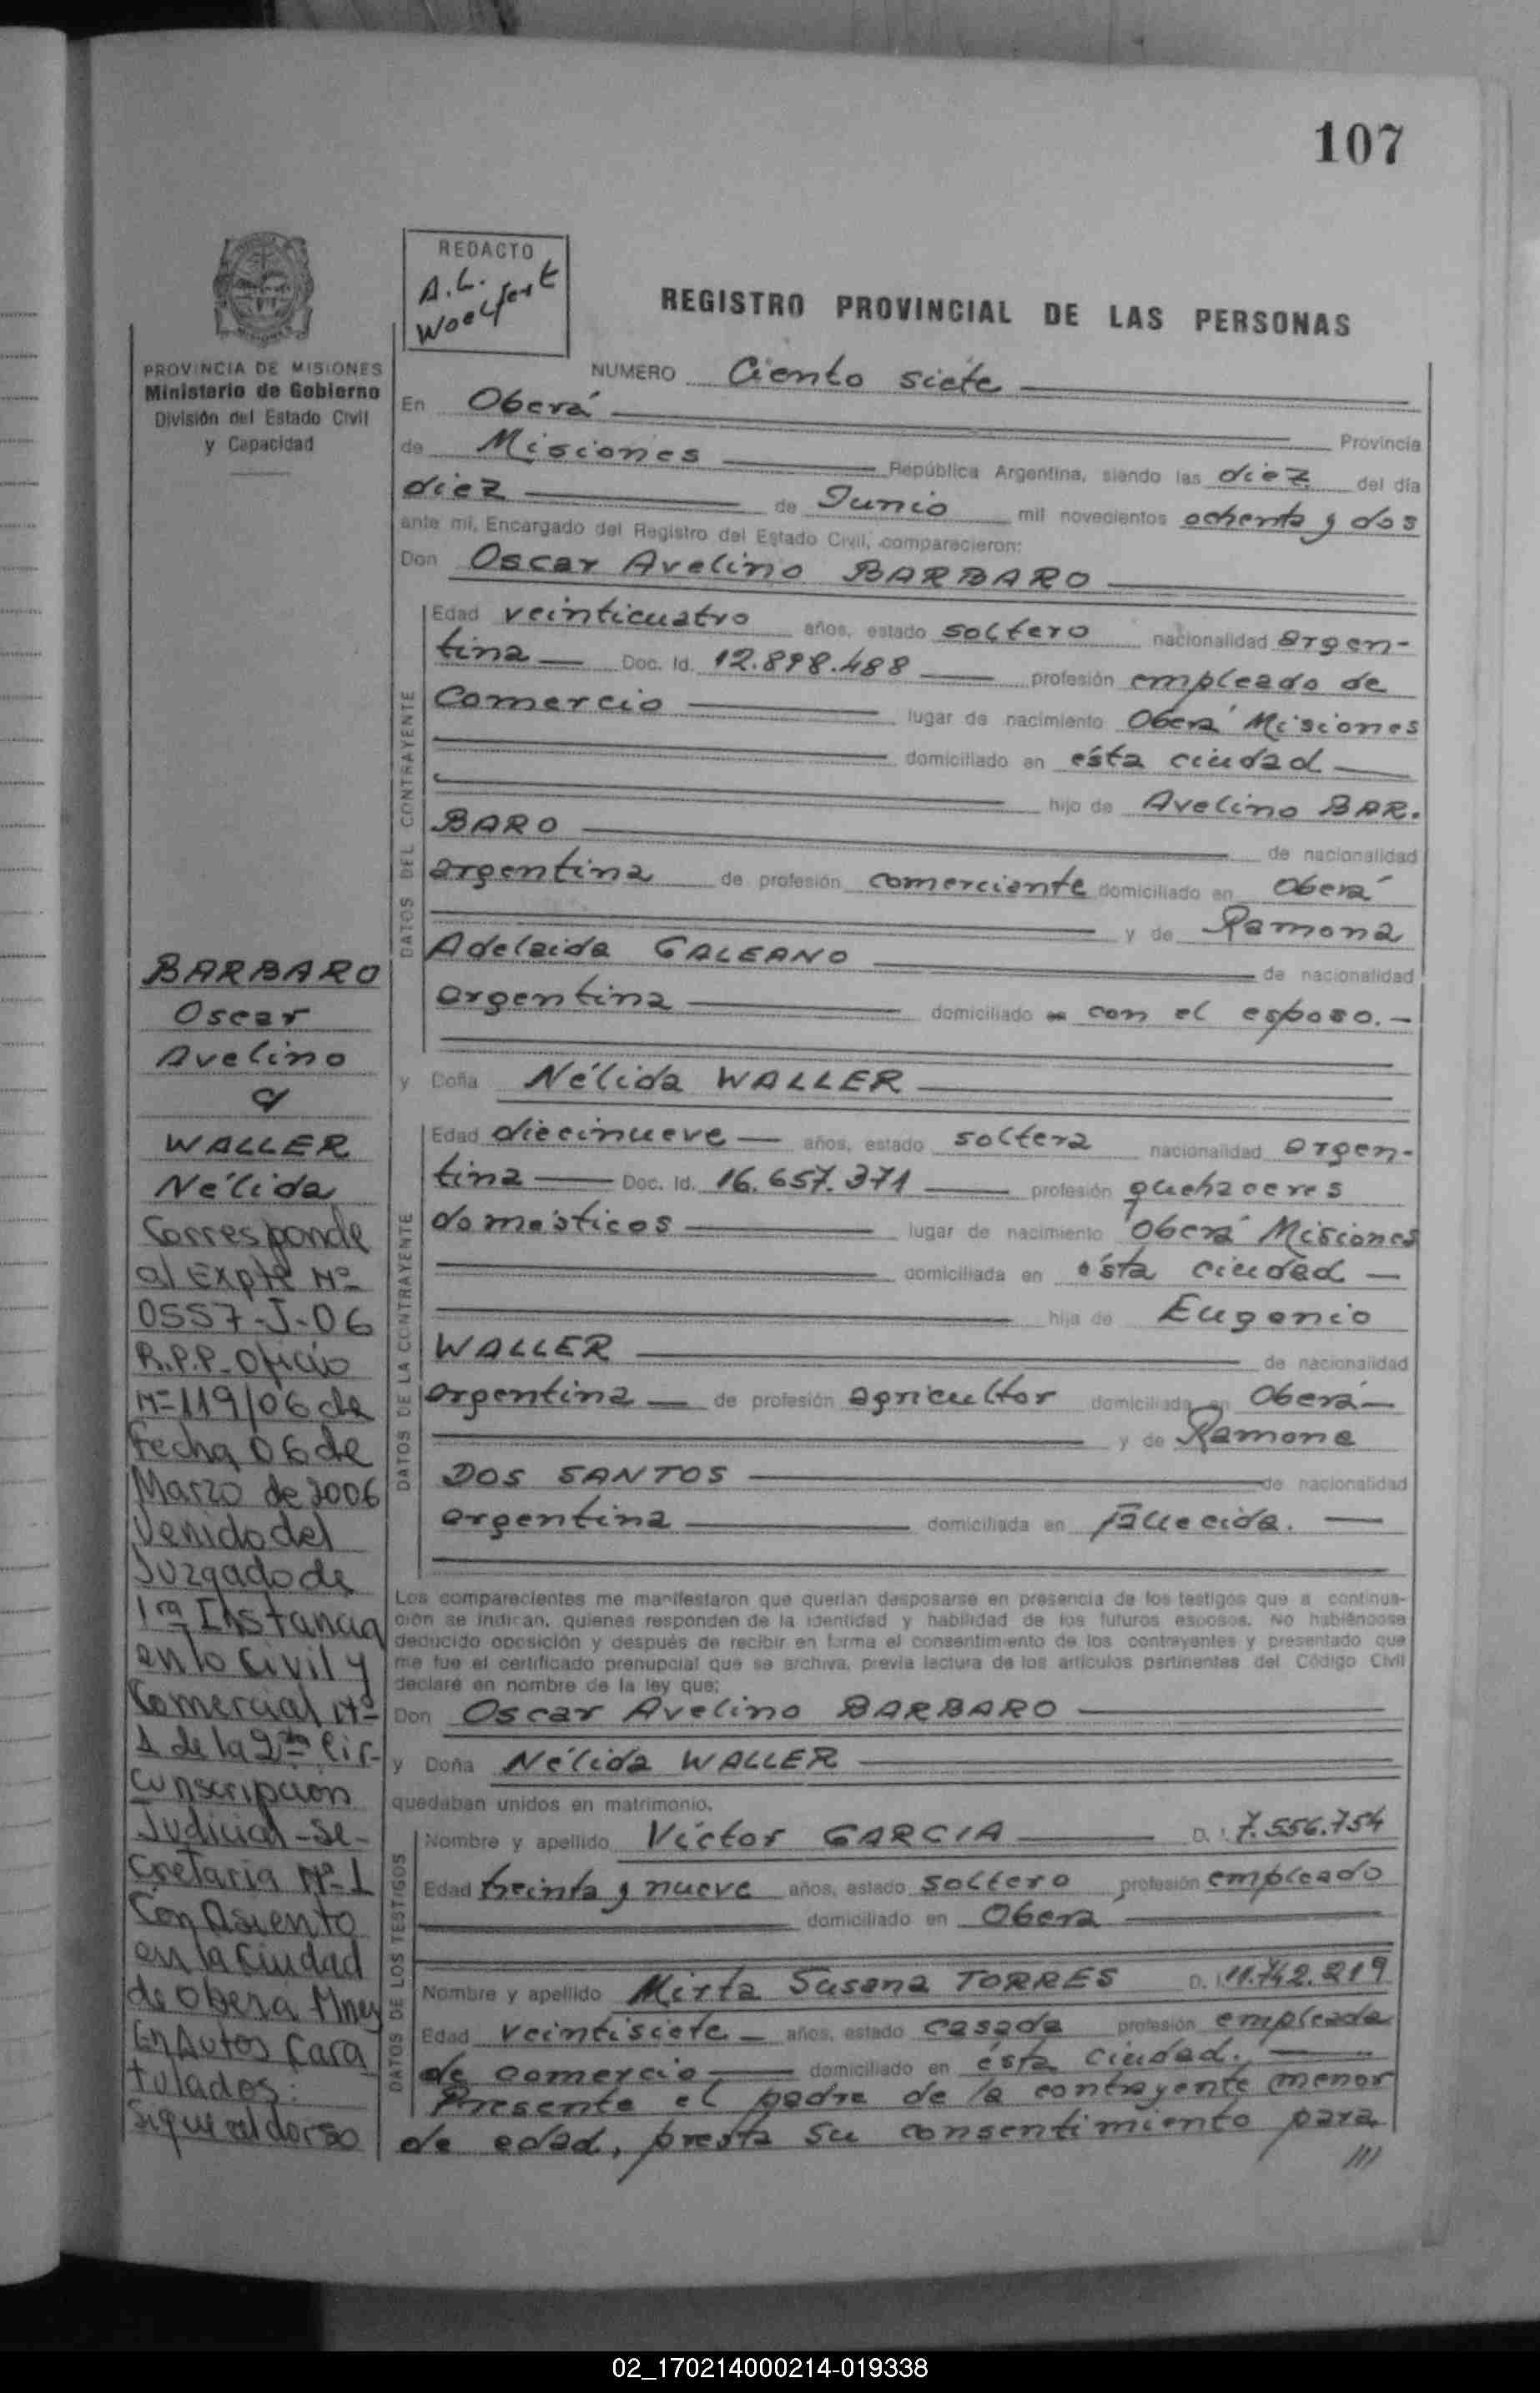 107
REDACTO
A.L.
Woelfert
REGISTRO PROVINCIAL DE LAS PERSONAS
PROVINCIA DE MISIONES
Ministerio de Gobierno
División del Estado Civil
y Capacidad
NUMERO Ciento siete
En Oberá
Provincia
de Misiones República Argentina, siendo las diez del día
diez de Junio mil novecientos ochenta y dos
ante mí, Encargado del Registro del Estado Civil, comparecieron:
Don Oscar Avelino BARBARO
DATOS DEL CONTRAYENTE
Edad veinticuatro años, estado soltero nacionalidad argen-
tina Doc. Id. 12.898.488 profesión empleado de
Comercio lugar de nacimiento Oberá Misiones
domiciliado en ésta ciudad
hijo de Avelino BAR.
BARO
de nacionalidad
argentina de profesión comerciante domiciliado en Oberá
y de Ramona
Adelaida GALEANO de nacionalidad
argentina domiciliado con el esposo.-
y Doña Nélida WALLER
DATOS DE LA CONTRAYENTE
Edad diecinueve años, estado soltera nacionalidad argen-
tina Doc. Id. 16.657.371 profesión quehaceres
domésticos lugar de nacimiento Oberá Misiones
domiciliada en ésta ciudad
hija de Eugenio
WALLER de nacionalidad
argentina de profesión agricultor domiciliada en Oberá
y de Ramona
DOS SANTOS de nacionalidad
argentina domiciliada en Fallecida.
Los comparecientes me manifestaron que querían desposarse en presencia de los testigos que a continua-
ción se indican, quienes responden de la identidad y habilidad de los futuros esposos. No habiéndose
deducido oposición y después de recibir en forma el consentimiento de los contrayentes y presentado que
me fue el certificado prenupcial que se archiva, previa lectura de los artículos pertinentes del Código Civil
declaré en nombre de la ley que:
Don Oscar Avelino BARBARO
y Doña Nélida WALLER
quedaban unidos en matrimonio.
DATOS DE LOS TESTIGOS
Nombre y apellido Víctor GARCIA D. I. 7.556.754
Edad treinta y nueve años, estado soltero profesión empleado
domiciliado en Oberá
Nombre y apellido Mirta Susana TORRES D. I. 11.742.219
Edad veintisiete años, estado casada profesión empleada
de comercio domiciliado en ésta ciudad.
Presente el padre de la contrayente menor
de edad, presta su consentimiento para
///
BARBARO
Oscar
Avelino
c/
WALLER
Nélida
Corresponde
al Expte Nº
0557-J-06
R.P.P-Oficio
Nº119/06 de
fecha 06 de
Marzo de 2006
Venido del
Juzgado de
1ra Instancia
en lo Civil y
Comercial Nº
1 de la 2da Cir-
cunscripcion
Judicial-Se-
cretaria Nº1
Con Asiento
en la Ciudad
de Obera Mnes
En Autos Cara
tulados:
Sigue al dorso
02_170214000214-019338